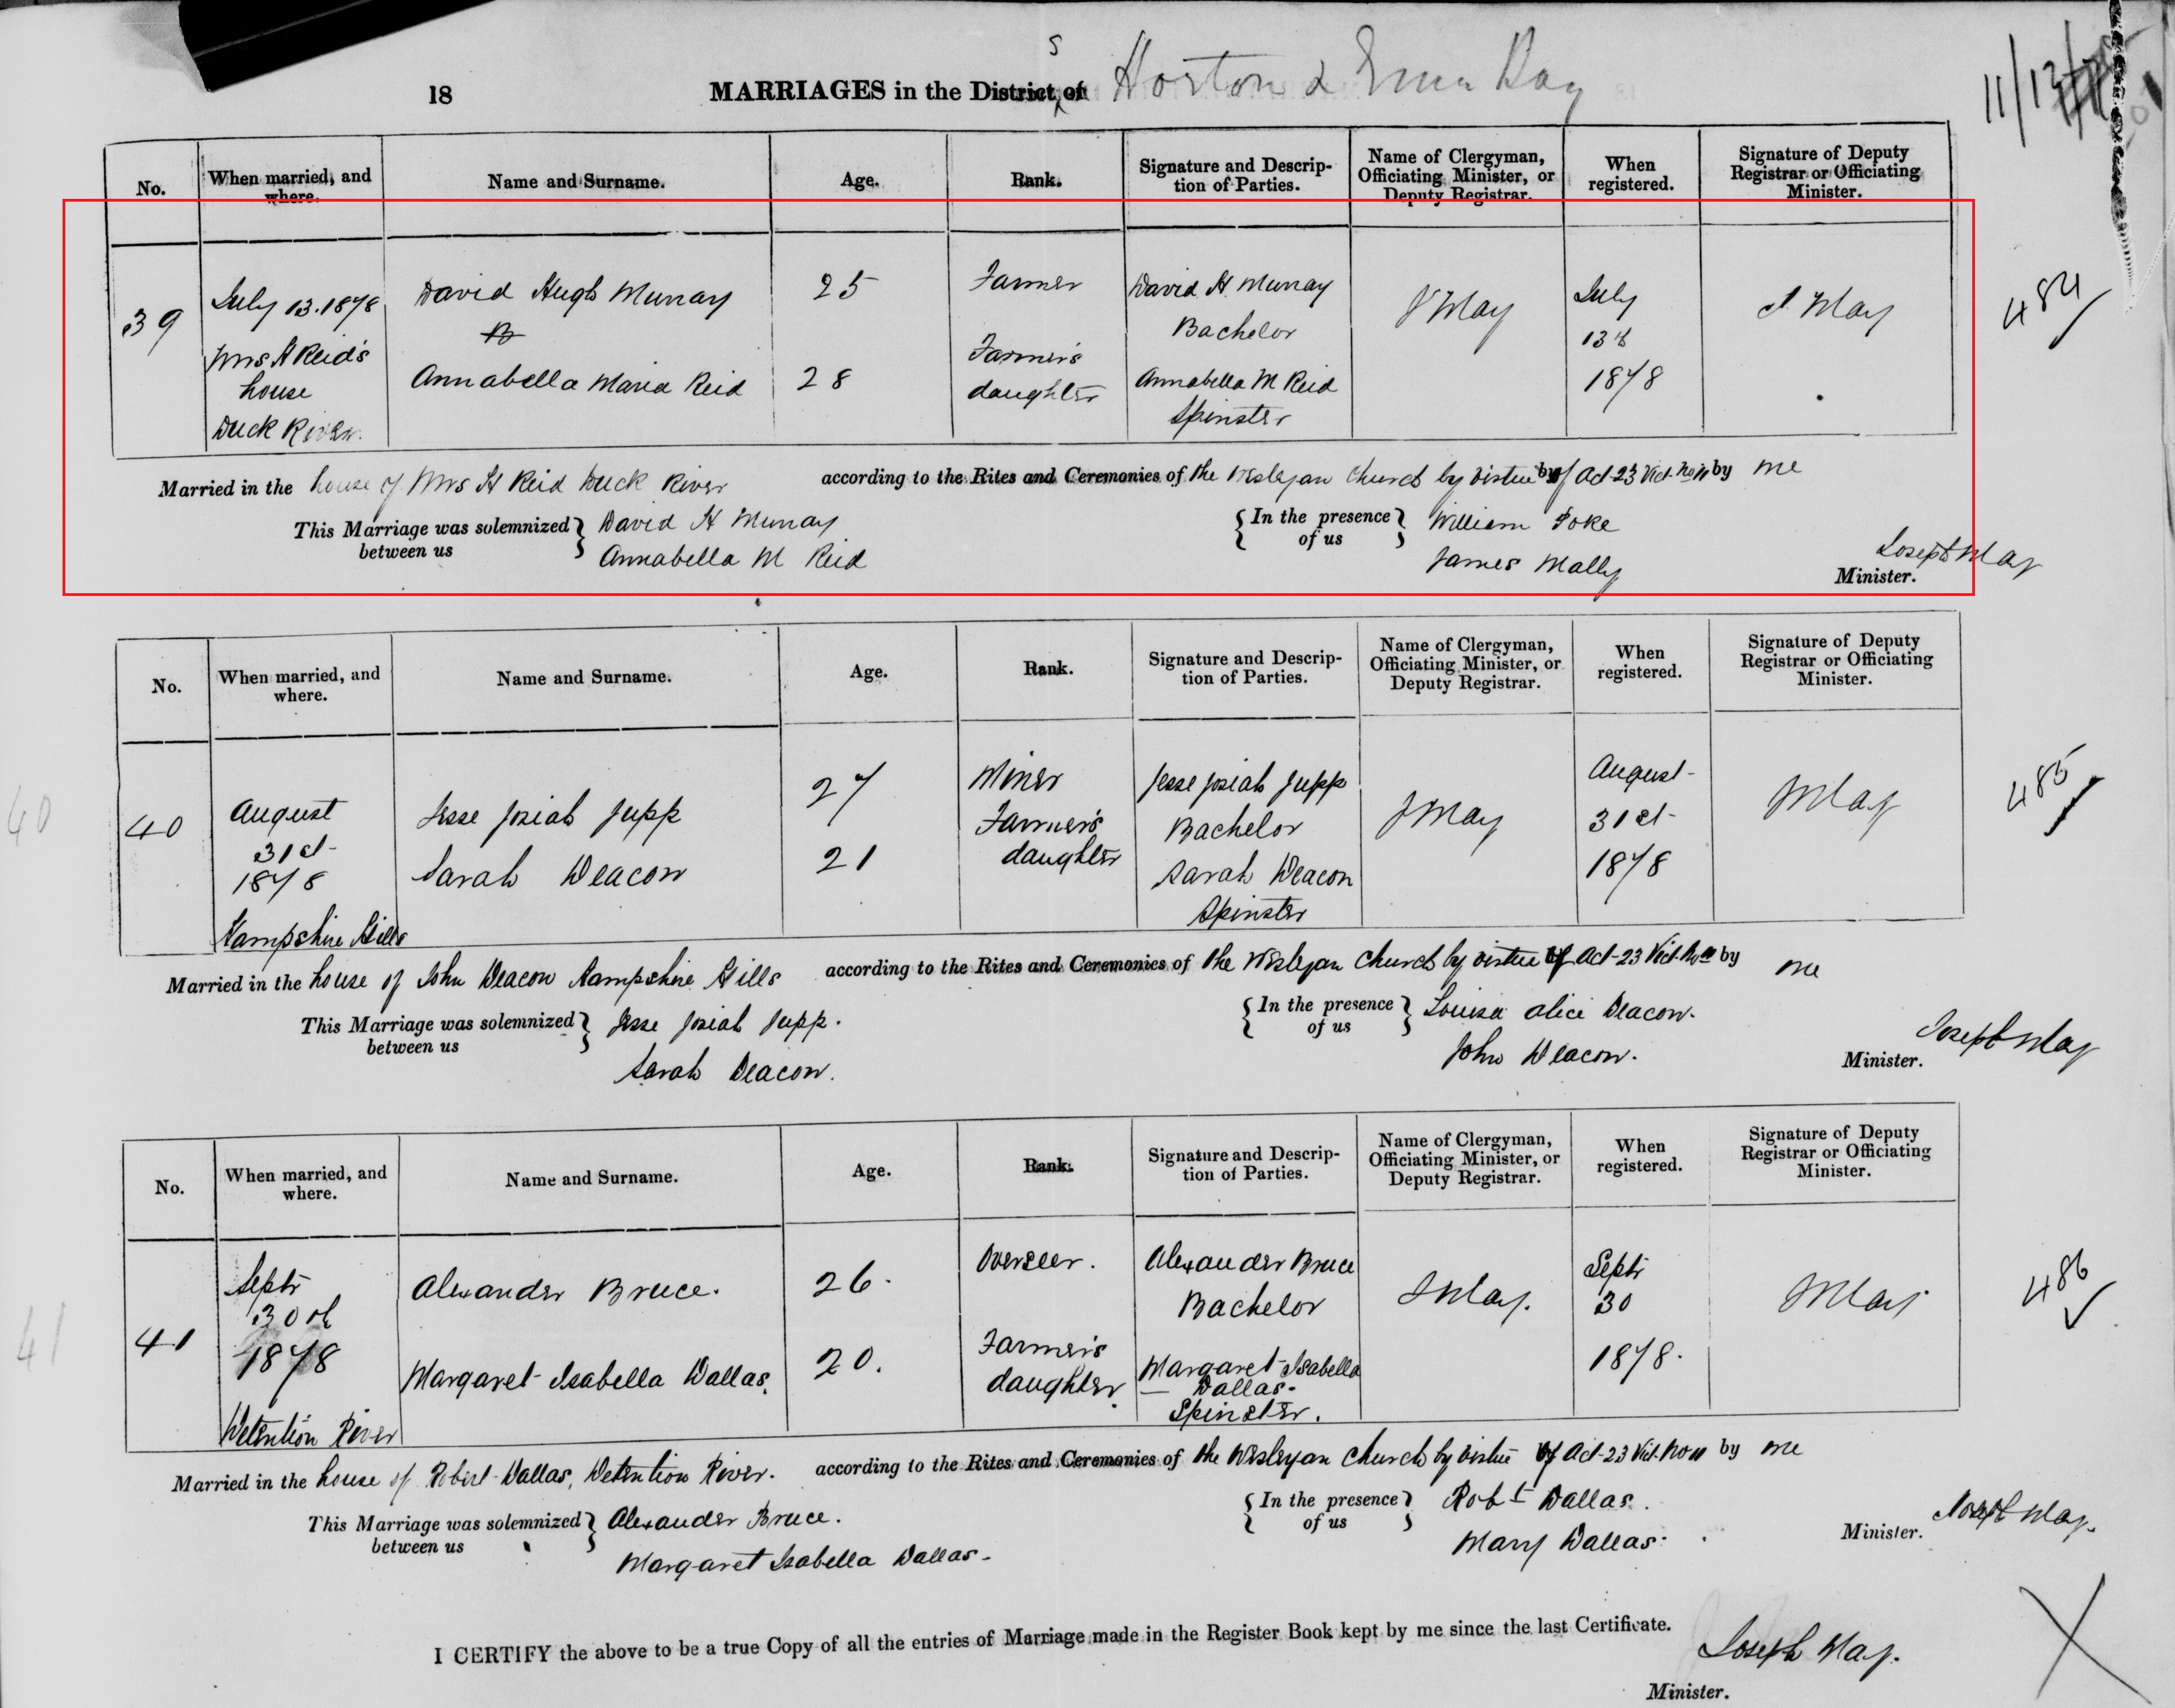 18 MARRIAGES in the Districts of Horton & Emu Bay
No. When married, and where. Name and Surname. Age. Rank. Signature and Description of Parties. Name of Clergyman, Officiating Minister, or Deputy Registrar. When registered. Signature of Deputy Registrar or Officiating Minister.
39 July 13. 1878 David Hugh Murray 25 Farmer David H. Murray J May July J May 484
B Bachelor 13th
Mrs H Reid's house Annabella Maria Reid 28 Farmer's daughter Annabella M Reid 1878
Duck River. Spinster
Married in the house of Mrs H Reid Duck River according to the Rites and Ceremonies of the Wesleyan Church by virtue of Act 23 Vict. No 11 by me
This Marriage was solemnized between us David H Murray In the presence of us William Poke
Annabella M Reid James Mally Joseph May
Minister.
No. When married, and where. Name and Surname. Age. Rank. Signature and Description of Parties. Name of Clergyman, Officiating Minister, or Deputy Registrar. When registered. Signature of Deputy Registrar or Officiating Minister.
40 40 August Jesse Josiah Jupp 27 Miner Jesse Josiah Jupp J May August J May 485
31st Farmer's Bachelor 31st
1878 Sarah Deacon 21 daughter Sarah Deacon 1878
Hampshire Hills Spinster
Married in the house of John Deacon Hampshire Hills according to the Rites and Ceremonies of the Wesleyan Church by virtue of Act 23 Vict. No 11 by me
This Marriage was solemnized between us Jesse Josiah Jupp. In the presence of us Louisa Alice Deacon.
Sarah Deacon. John Deacon. Joseph May
Minister.
No. When married, and where. Name and Surname. Age. Rank. Signature and Description of Parties. Name of Clergyman, Officiating Minister, or Deputy Registrar. When registered. Signature of Deputy Registrar or Officiating Minister.
41 41 Septr Alexander Bruce. 26. Overseer. Alexander Bruce J May. Septr J May 486
30th Bachelor 30
1878 Margaret Isabella Dallas. 20. Farmer's daughter. Margaret Isabella Dallas. 1878.
Detention River Spinster.
Married in the house of Robert Dallas, Detention River. according to the Rites and Ceremonies of the Wesleyan Church by virtue of Act 23 Vict. No 11 by me
This Marriage was solemnized between us Alexander Bruce. In the presence of us Robt Dallas.
Margaret Isabella Dallas. Mary Dallas. Joseph May.
Minister.
I CERTIFY the above to be a true Copy of all the entries of Marriage made in the Register Book kept by me since the last Certificate. Joseph May.
Minister.